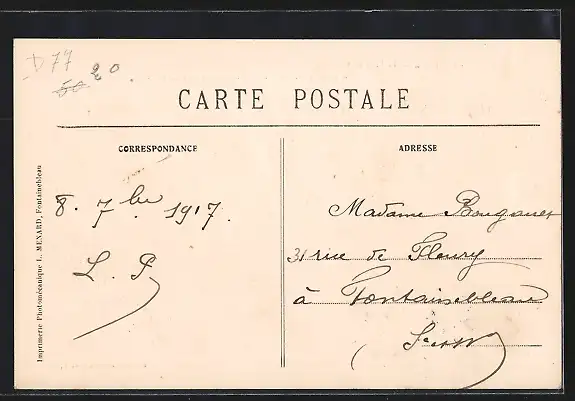 D77
20
50
CARTE POSTALE
CORRESPONDANCE
ADRESSE
8. 7bre 1917.
L. P
Madame Bougault
31 rue de Fleury
à Fontainebleau
S et M
Imprimerie Photomécanique L. MENARD, Fontainebleau